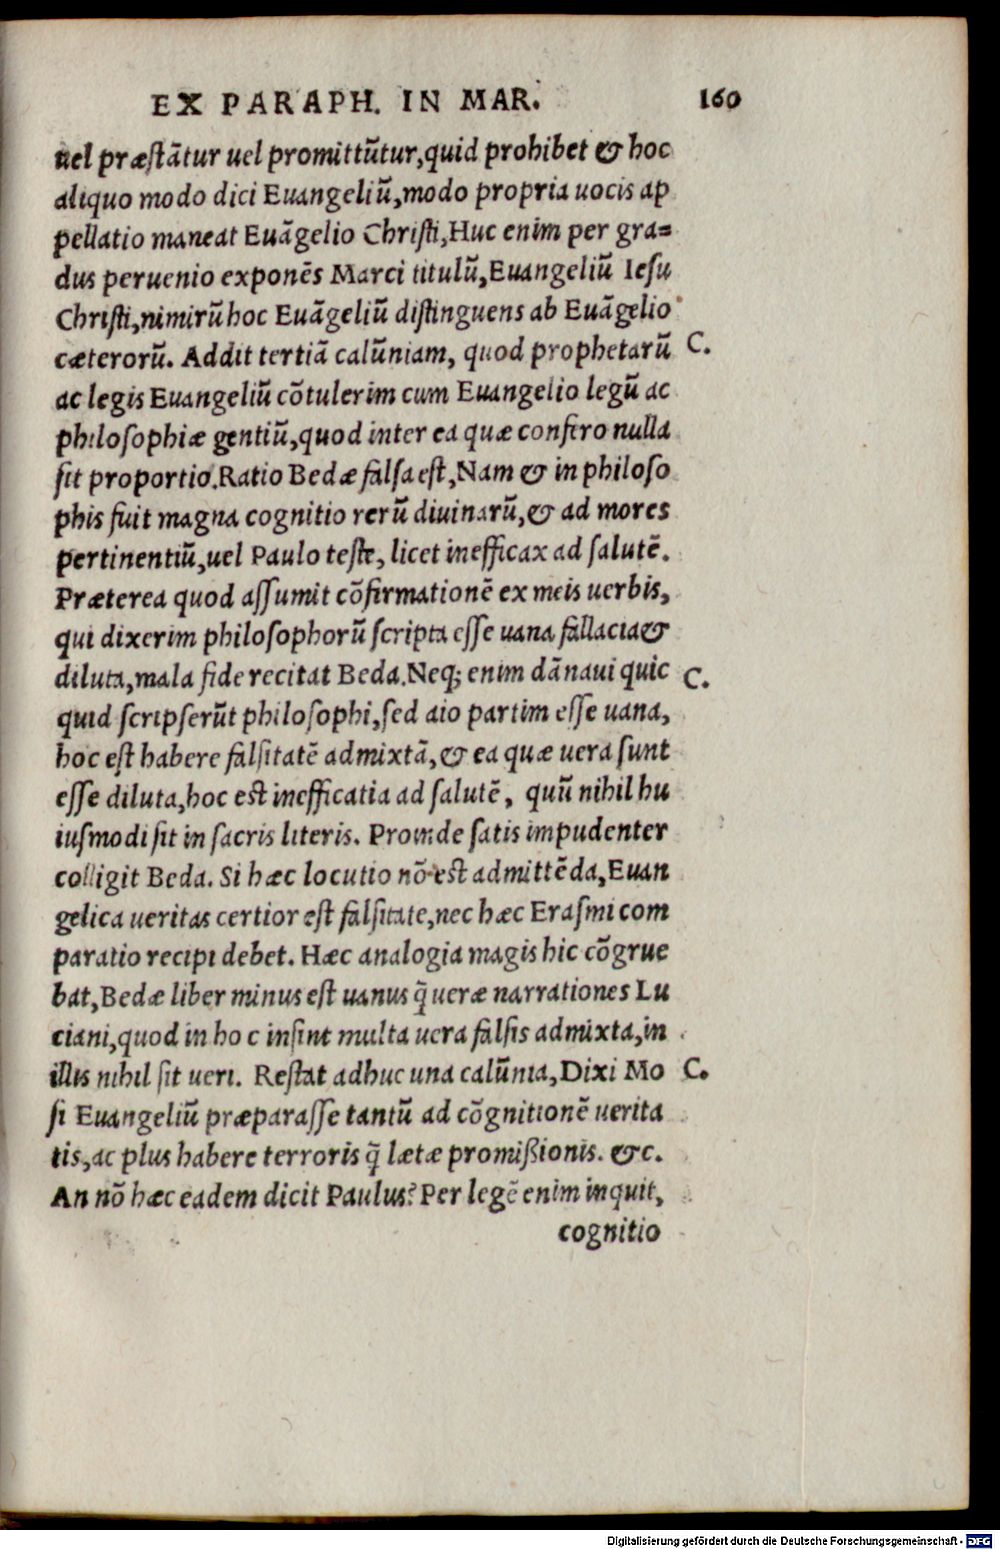 EX PARAPH. IN MAR. 160
uel præstātur uel promittūtur, quid prohibet & hoc
aliquo modo dici Euangeliū, modo propria uocis ap
pellatio maneat Euāgelio Christi, Huc enim per gra=
dus peruenio exponēs Marci titulū, Euangeliū Iesu
Christi, nimirū hoc Euāgeliū distinguens ab Euāgelio
cæterorū. Addit tertiā calūniam, quod prophetarū C.
ac legis Euangeliū cōtulerim cum Euangelio legū ac
philosophiæ gentiū, quod inter ea quæ confero nulla
sit proportio. Ratio Bedæ falsa est, Nam & in philoso
phis fuit magna cognitio rerū diuinarū, & ad mores
pertinentiū, uel Paulo teste, licet inefficax ad salutē.
Præterea quod assumit cōfirmationē ex meis uerbis,
qui dixerim philosophorū scripta esse uana fallacia &
diluta, mala fide recitat Beda. Neq; enim dānaui quic C.
quid scripserūt philosophi, sed aio partim esse uana,
hoc est habere falsitatē admixtā, & ea quæ uera sunt
esse diluta, hoc est inefficatia ad salutē, quū nihil hu
iusmodi sit in sacris literis. Proinde satis impudenter
colligit Beda. Si hæc locutio nō est admittēda, Euan
gelica ueritas certior est falsitate, nec hæc Erasmi com
paratio recipi debet. Hæc analogia magis hic cōgrue
bat, Bedæ liber minus est uanus q̄ ueræ narrationes Lu
ciani, quod in ho c insint multa uera falsis admixta, in
illis nihil sit ueri. Restat adhuc una calūnia, Dixi Mo C.
si Euangeliū præparasse tantū ad cōgnitionē uerita
tis, ac plus habere terroris q̄ lætæ promißionis. &c.
An nō hæc eadem dicit Paulus? Per legē enim inquit,
cognitio
Digitalisierung gefördert durch die Deutsche Forschungsgemeinschaft - DFG